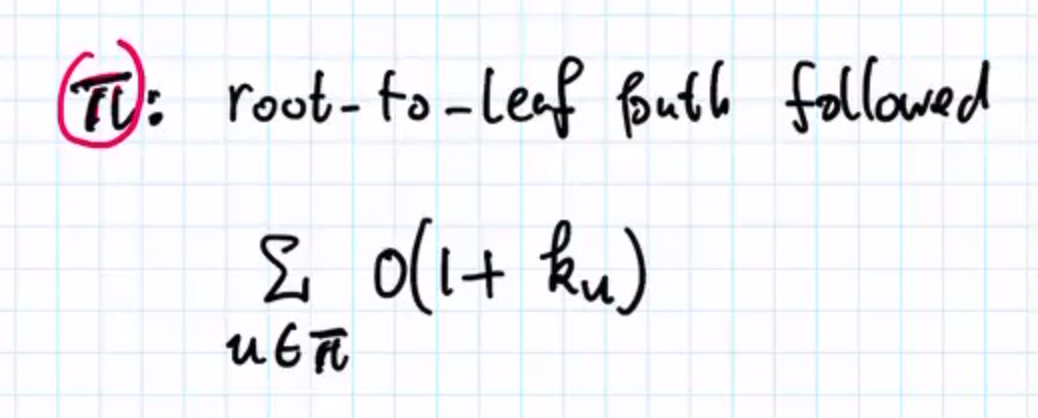 π: root-to-leaf path followed
∑ O(1+ kᵤ)
u∈π